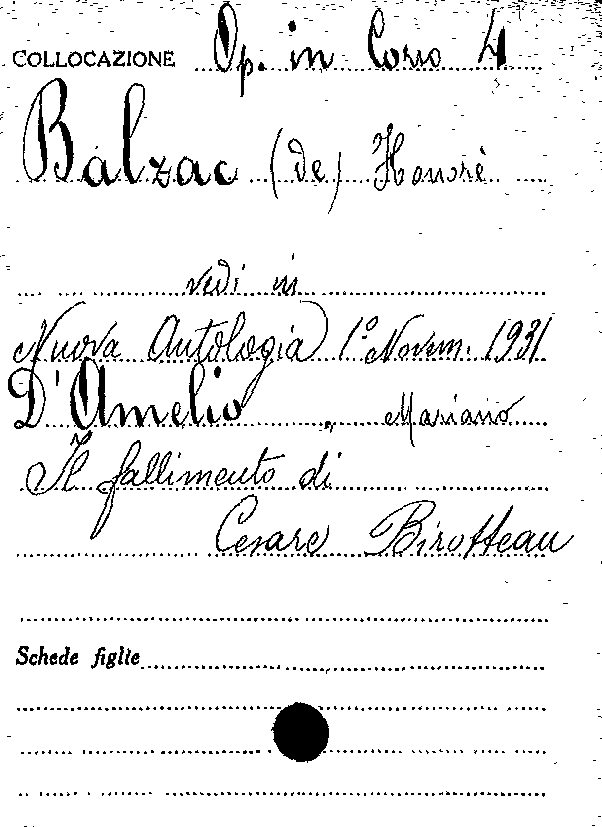 COLLOCAZIONE Op. in Corso 4
Balzac (de) Honorè
vedi in
Nuova Antologia 1° Novem. 1931
D'Amelio, Mariano
Il fallimento di
Cesare Birotteau
Schede figlie